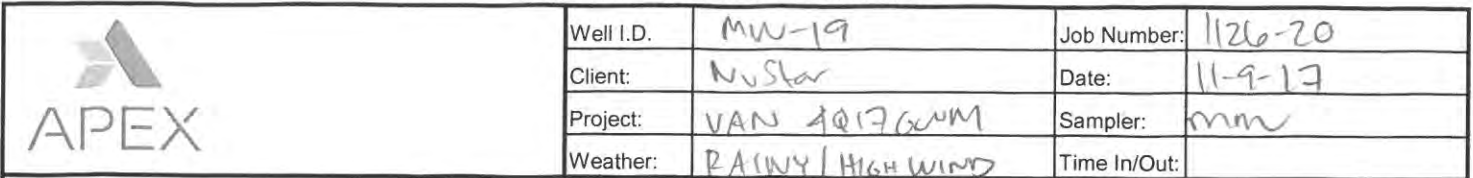 APEX
Well I.D. MW-19 Job Number: 1126-20
Client: NuStar Date: 11-9-17
Project: VAN 4Q17 GWM Sampler: mm
Weather: RAINY / HIGH WIND Time In/Out: